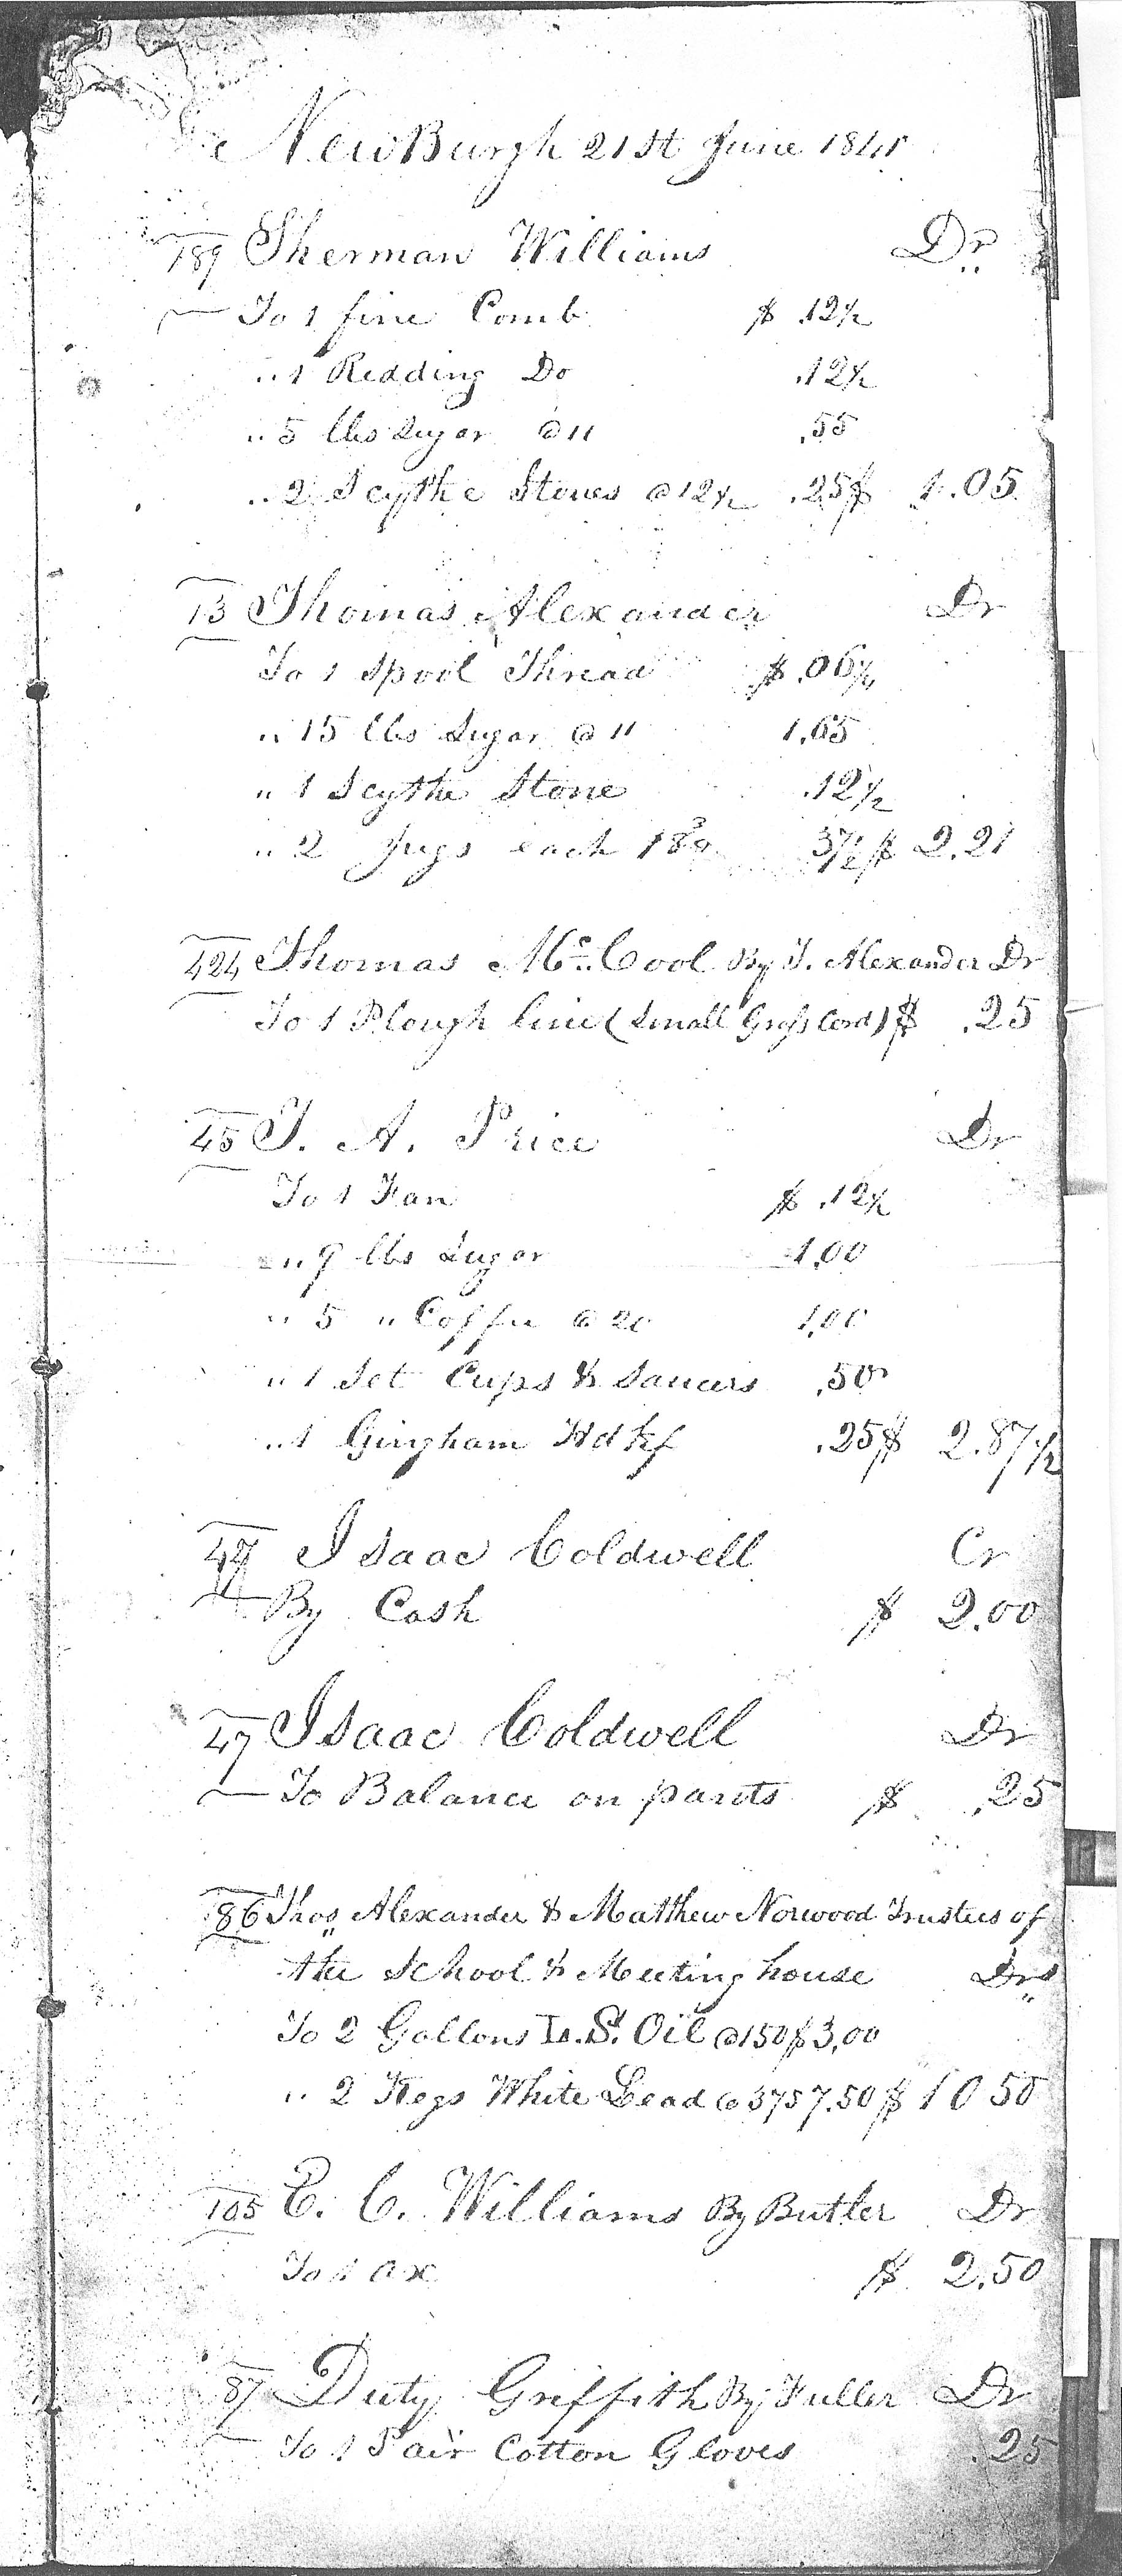 NewBurgh 21st June 1841
189 Sherman Williams Dr
To 1 fine Comb $ .12½
" 1 Redding Do .12½
" 5 lbs Sugar @ 11 .55
" 2 Scythe Stones @ 12½ .25 $ 1.05
13 Thomas Alexander Dr
To 1 Spool Thread $ .06¼
" 15 lbs Sugar @ 11 1.65
" 1 Scythe Stone .12½
" 2 Jugs each 18¾ 37½ $ 2.21
424 Thomas McCool By T. Alexander Dr
To 1 Plough line (Small Grass Cord) $ .25
45 T. A. Price Dr
To 1 Fan $ .12½
" 9 lbs Sugar 1.00
" 5 " Coffee @ 20 1.00
" 1 Set Cups & Saucers .50
" 1 Gingham Hdkf .25 $ 2.87½
47 Isaac Coldwell Cr
By Cash $ 2.00
47 Isaac Coldwell Dr
To Balance on pants $ .25
186 Thos Alexander & Matthew Norwood Trustees of
the School & Meeting house Drs
To 2 Gallons L.S. Oil @ 150 $ 3.00
" 2 Kegs White Lead @ 375 7.50 $ 10 50
105 E. C. Williams By Butler Dr
To 1 ax $ 2.50
87 Duty Griffith By Fuller Dr
To 1 Pair Cotton Gloves .25